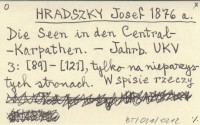 HRADSZKY Josef 1876 a.
Die Seen in den Central-
-Karpathen. — Jahrb. UKV
3: [89] - [121], tylko na nieparzys-
tych stronach. W spisie rzeczy